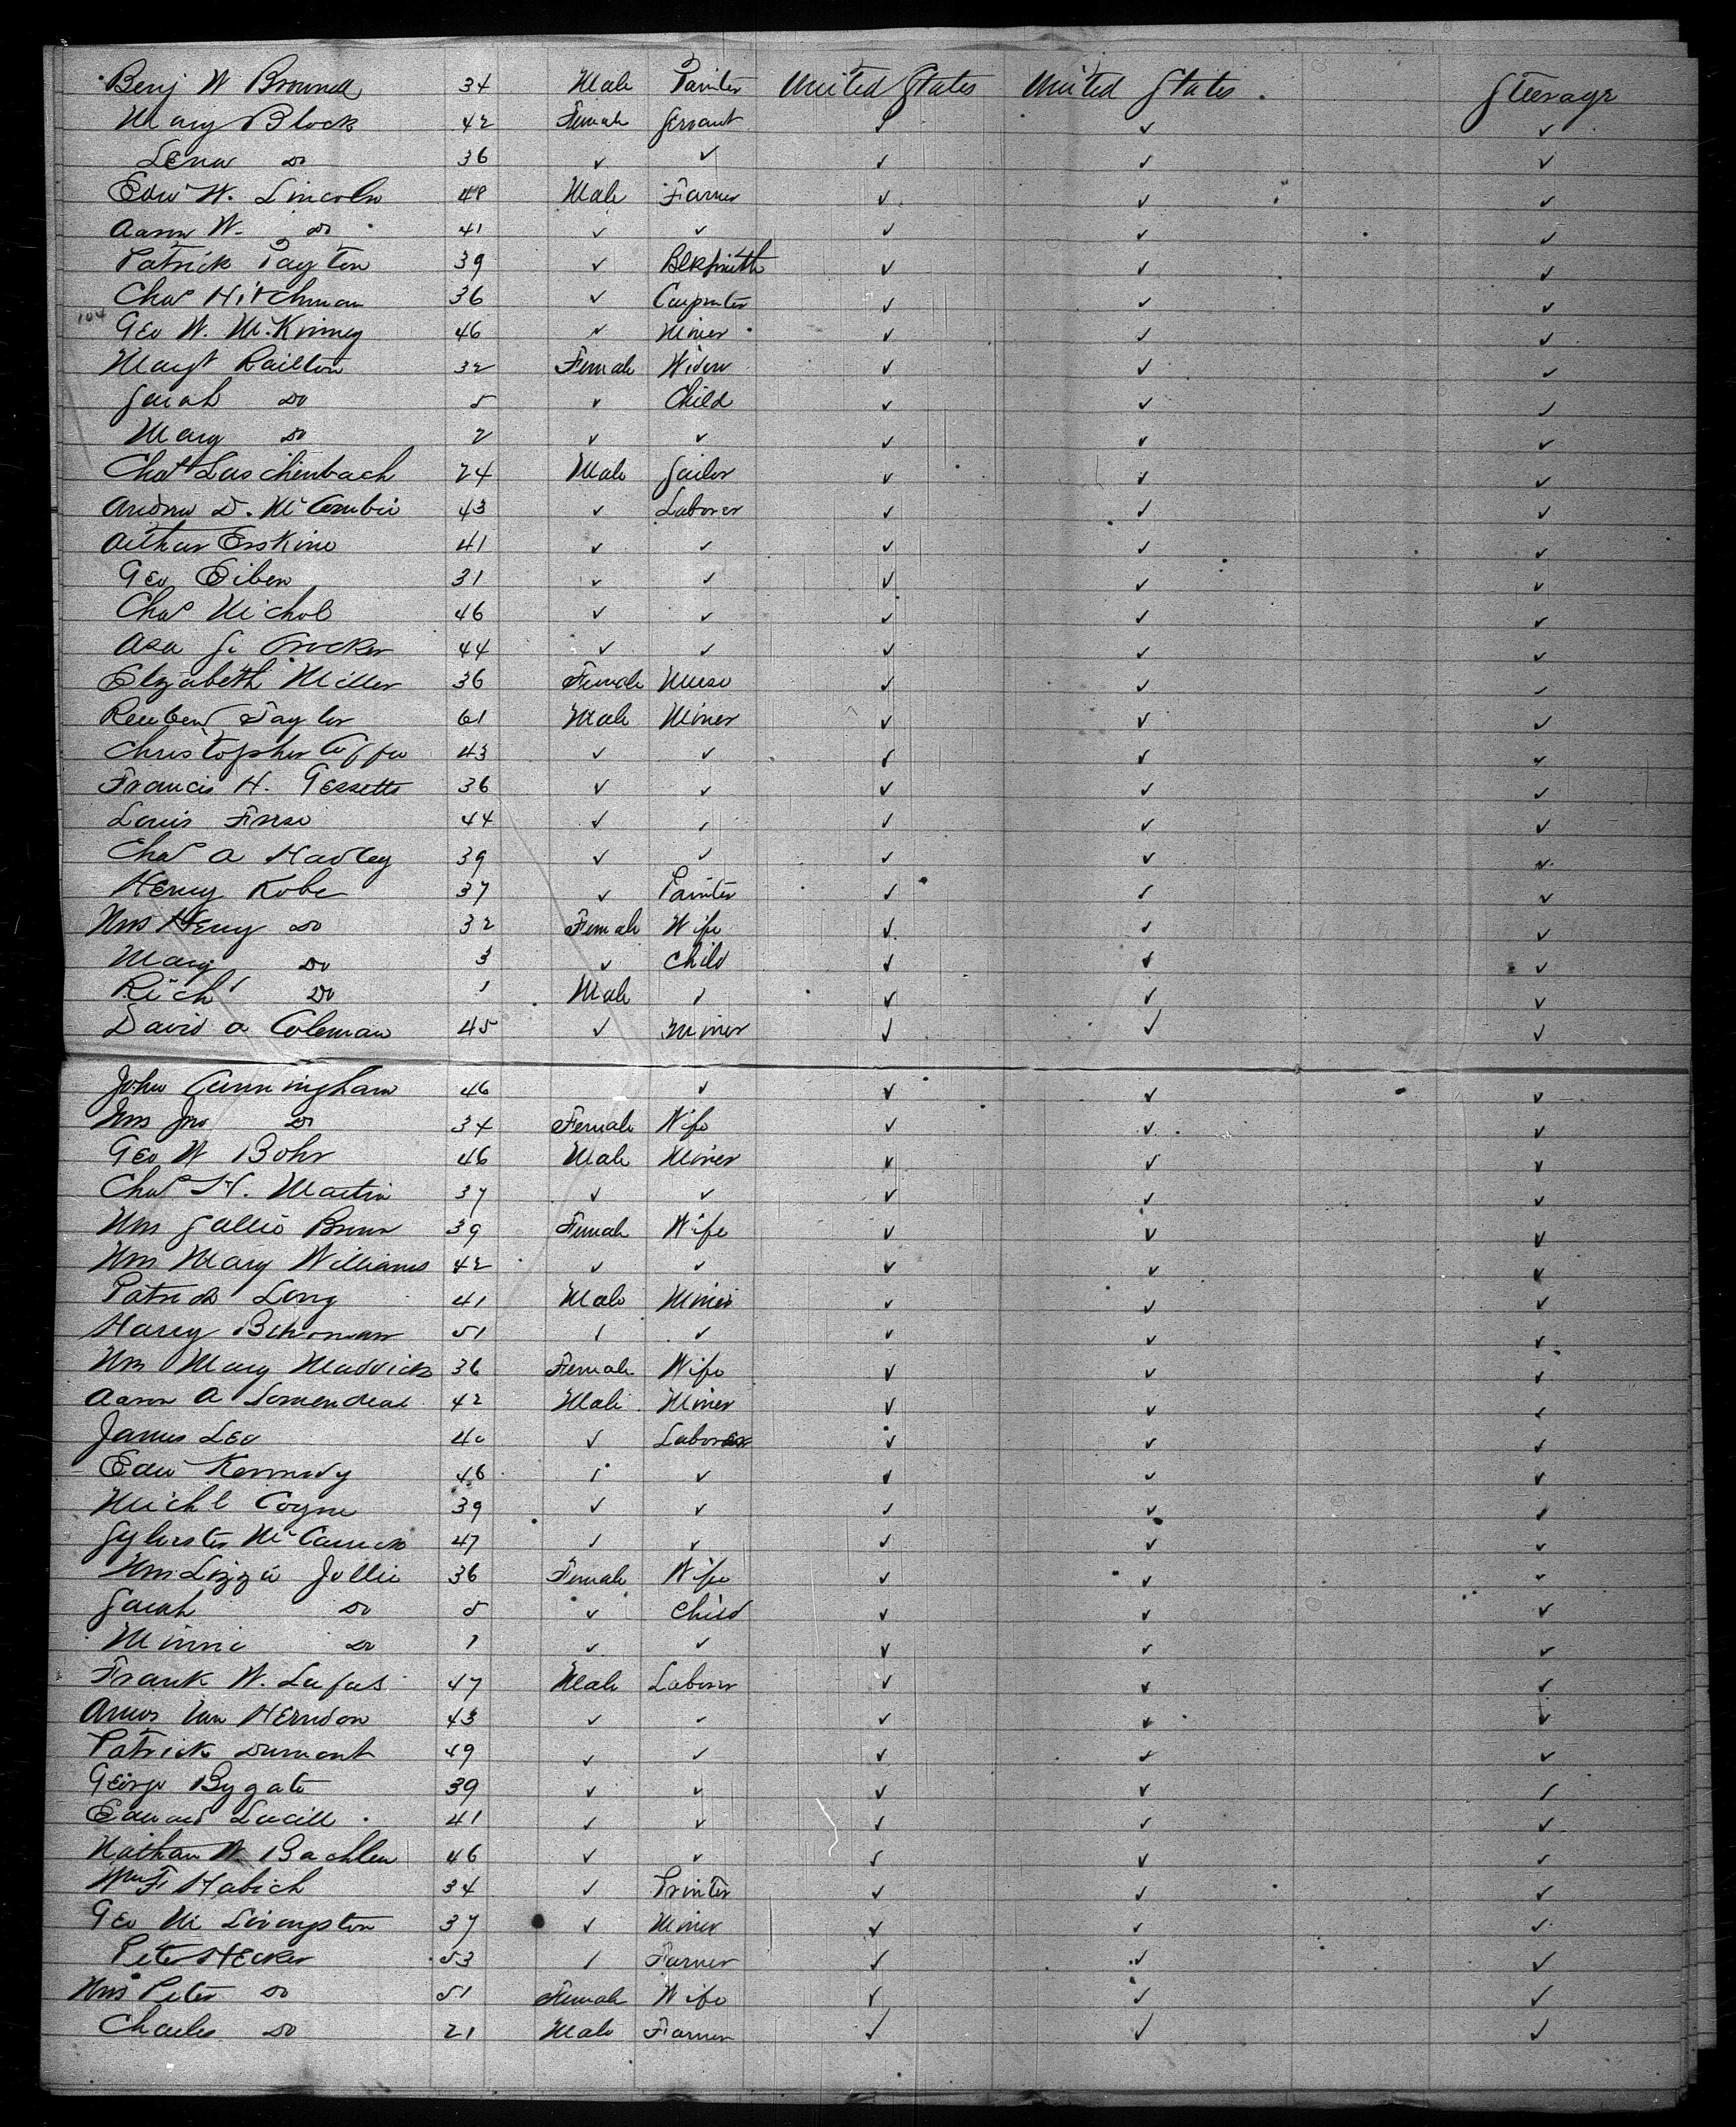 Benj W Brownell 34 Male Painter United States United States Steerage
Mary Block 42 Female Servant ✓ ✓ ✓
Lena Do 36 ✓ ✓ ✓ ✓ ✓
Edw W. Lincoln 48 Male Farmer ✓ ✓ ✓
Aaron W. Do 41 ✓ ✓ ✓ ✓ ✓
Patrick Payton 39 ✓ Blksmith ✓ ✓ ✓
Chas Hitchman 36 ✓ Carpenter ✓ ✓ ✓
104 Geo W. McKinney 46 ✓ Miner ✓ ✓ ✓
Margt Railton 32 Female Widow ✓ ✓ ✓
Sarah Do 5 ✓ Child ✓ ✓ ✓
Mary Do 2 ✓ ✓ ✓ ✓ ✓
Chas Laschenbach 24 Male Sailor ✓ ✓ ✓
Andrew D. McCombie 43 ✓ Laborer ✓ ✓ ✓
Arthur Erskine 41 ✓ ✓ ✓ ✓ ✓
Geo Eiben 31 ✓ ✓ ✓ ✓ ✓
Chas Nichol 46 ✓ ✓ ✓ ✓ ✓
Asa S. Crocker 44 ✓ ✓ ✓ ✓ ✓
Elizabeth Miller 36 Female Nurse ✓ ✓ ✓
Reuben Taylor 61 Male Miner ✓ ✓ ✓
Christopher 43 ✓ ✓ ✓ ✓ ✓
Francis H. Gessetts 36 ✓ ✓ ✓ ✓ ✓
Louis 44 ✓ ✓ ✓ ✓ ✓
Chas A Hadley 39 ✓ ✓ ✓ ✓ ✓
Henry Kobe 37 ✓ Painter ✓ ✓ ✓
Mrs Henry Do 32 Female Wife ✓ ✓ ✓
Mary Do 3 ✓ Child ✓ ✓ ✓
Rich Do 1 Male ✓ ✓ ✓ ✓
David A Coleman 45 ✓ Miner ✓ ✓ ✓
John Cunningham 46 ✓ ✓ ✓ ✓
Mrs Jno Do 34 Female Wife ✓ ✓ ✓
Geo W Bohr 46 Male Miner ✓ ✓ ✓
Chas H. Martin 37 ✓ ✓ ✓ ✓ ✓
Mrs Sallie 39 Female Wife ✓ ✓ ✓
Mrs Mary Williams 42 ✓ ✓ ✓ ✓ ✓
Patrick Long 41 Male Miner ✓ ✓ ✓
Harry 51 ✓ ✓ ✓ ✓ ✓
Mrs Mary Maddick 36 Female Wife ✓ ✓ ✓
Aaron A Somendeal 42 Male Miner ✓ ✓ ✓
James Leo 40 ✓ Laborer ✓ ✓ ✓
Edw Kennedy 46 ✓ ✓ ✓ ✓ ✓
Michl Coyne 39 ✓ ✓ ✓ ✓ ✓
Sylvester 47 ✓ ✓ ✓ ✓ ✓
Mrs Lizzie Jollie 36 Female Wife ✓ ✓ ✓
Sarah Do 5 ✓ Child ✓ ✓ ✓
Minnie Do 1 ✓ ✓ ✓ ✓ ✓
Frank W. 47 Male Laborer ✓ ✓ ✓
Amos Van Herndon 43 ✓ ✓ ✓ ✓ ✓
Patrick Dumont 49 ✓ ✓ ✓ ✓ ✓
George Bygate 39 ✓ ✓ ✓ ✓ ✓
Edward Lucill 41 ✓ ✓ ✓ ✓ ✓
Nathan W Bachlen 46 ✓ ✓ ✓ ✓ ✓
Wm F. Habich 34 ✓ Printer ✓ ✓ ✓
Geo M Livingston 37 ✓ Miner ✓ ✓ ✓
Peter Hecker 53 ✓ Farmer ✓ ✓ ✓
Mrs Peter Do 51 Female Wife ✓ ✓ ✓
Charles Do 21 Male Farmer ✓ ✓ ✓